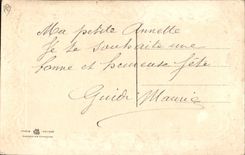 Ma petite Annette
Je te souhaite une
bonne et heureuse fête
Guide Maurice